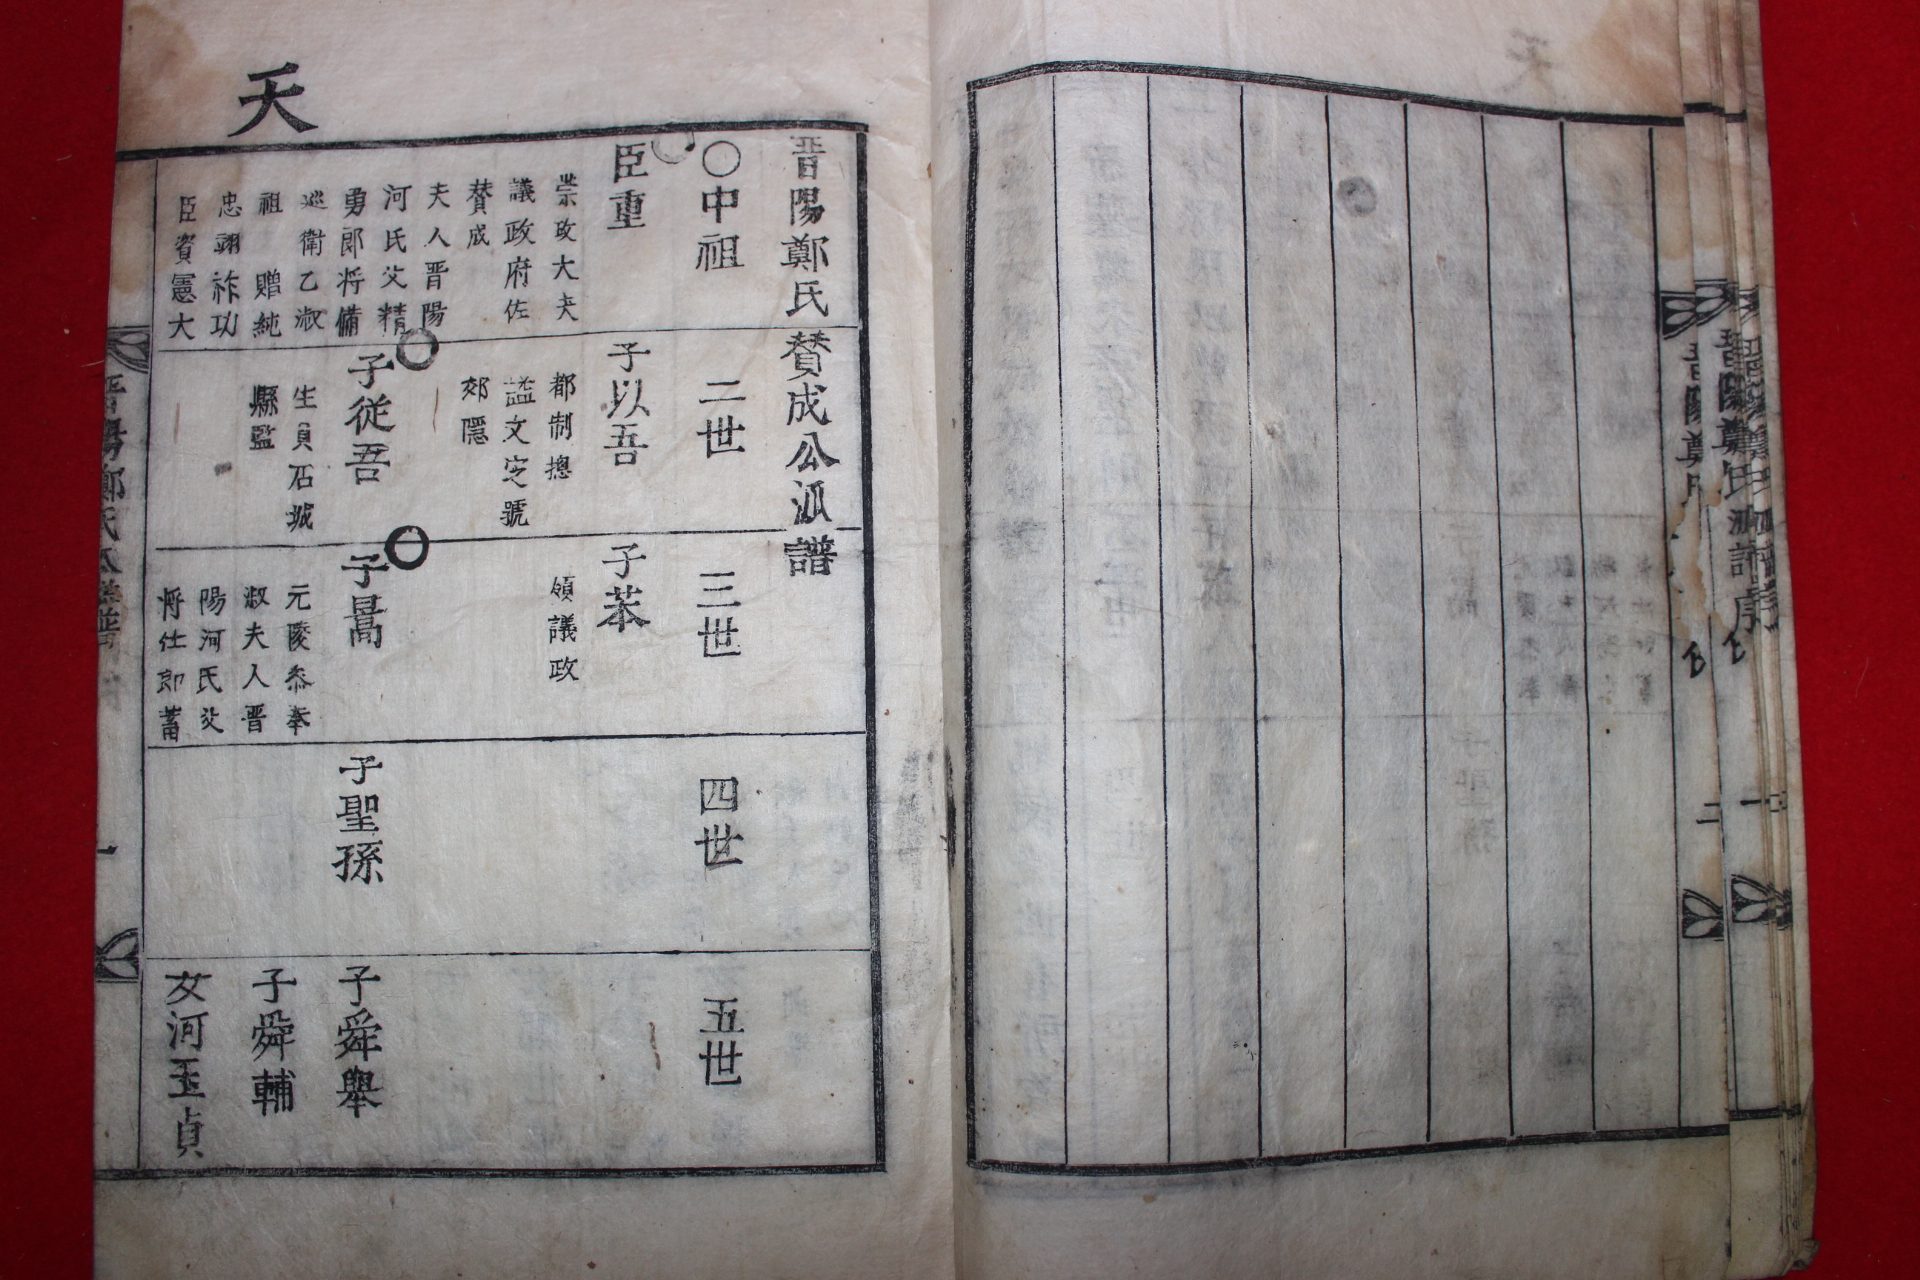 天
晉陽鄭氏賛成公派譜
〇中祖
二世
三世
四世
五世
臣重
崇政大夫
議政府佐
賛成
夫人晋陽
河氏父精
勇郞将備
巡衛乙淑
祖贈純
忠翊祚功
臣資憲大
子以吾
都制摠
諡文定號
郊隱
子從吾
生員石城
縣監
子苯
領議政
子暠
元陵叅奉
淑夫人晋
陽河氏父
将仕郎蓄
子聖孫
子舜舉
子舜輔
女河玉貞
一
二
一